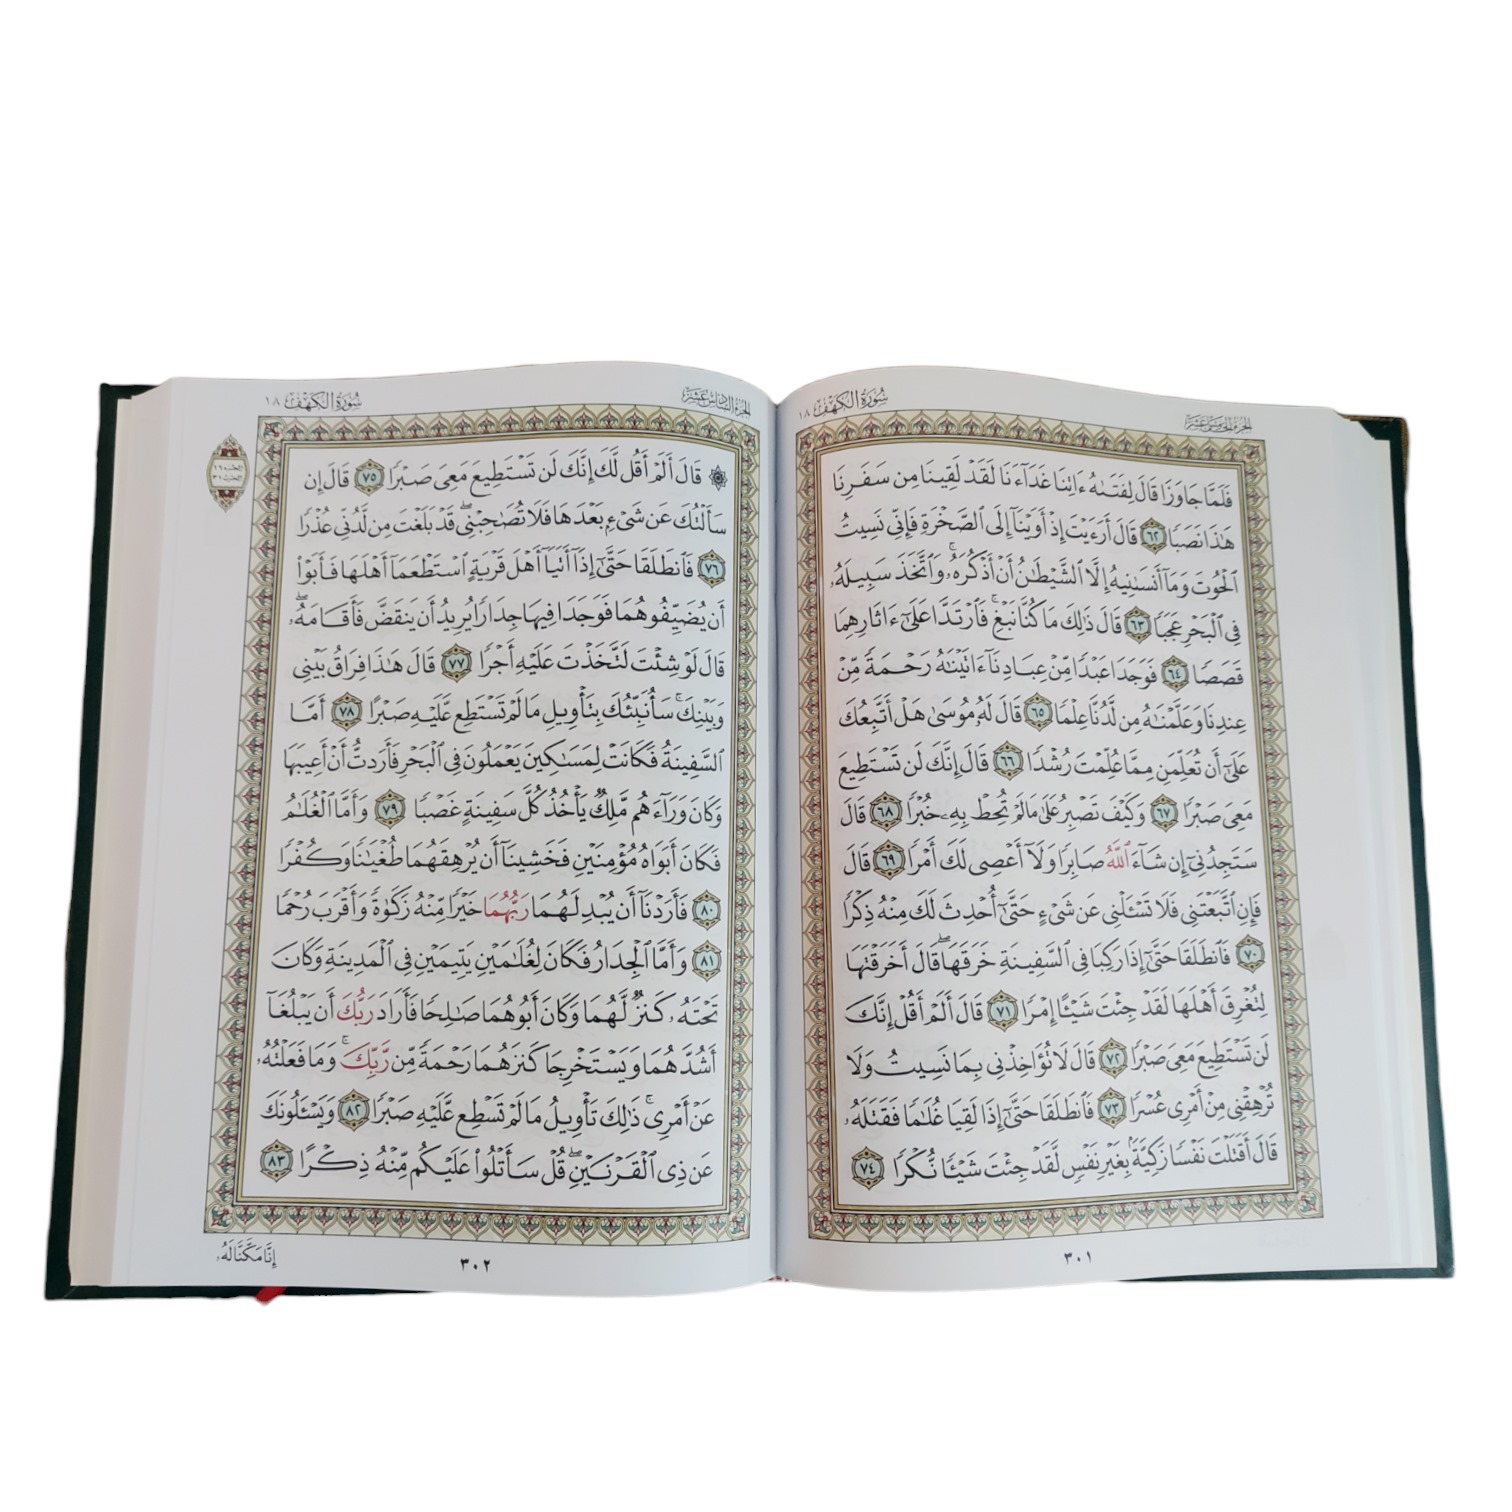 سُورَةُ الكَهْفِ ١٨
الجُزْءُ الخَامِسَ عَشَرَ
فَلَمَّا جَاوَزَا قَالَ لِفَتَىٰهُ ءَاتِنَا غَدَآءَنَا لَقَدْ لَقِينَا مِن سَفَرِنَا
هَٰذَا نَصَبًا ٦٢ قَالَ أَرَءَيْتَ إِذْ أَوَيْنَآ إِلَى ٱلصَّخْرَةِ فَإِنِّى نَسِيتُ
ٱلْحُوتَ وَمَآ أَنسَىٰنِيهُ إِلَّا ٱلشَّيْطَٰنُ أَنْ أَذْكُرَهُۥۚ وَٱتَّخَذَ سَبِيلَهُۥ
فِى ٱلْبَحْرِ عَجَبًا ٦٣ قَالَ ذَٰلِكَ مَا كُنَّا نَبْغِۚ فَٱرْتَدَّا عَلَىٰٓ ءَاثَارِهِمَا
قَصَصًا ٦٤ فَوَجَدَا عَبْدًا مِّنْ عِبَادِنَآ ءَاتَيْنَٰهُ رَحْمَةً مِّنْ
عِندِنَا وَعَلَّمْنَٰهُ مِن لَّدُنَّا عِلْمًا ٦٥ قَالَ لَهُۥ مُوسَىٰ هَلْ أَتَّبِعُكَ
عَلَىٰٓ أَن تُعَلِّمَنِ مِمَّا عُلِّمْتَ رُشْدًا ٦٦ قَالَ إِنَّكَ لَن تَسْتَطِيعَ
مَعِىَ صَبْرًا ٦٧ وَكَيْفَ تَصْبِرُ عَلَىٰ مَا لَمْ تُحِطْ بِهِۦ خُبْرًا ٦٨ قَالَ
سَتَجِدُنِىٓ إِن شَآءَ ٱللَّهُ صَابِرًا وَلَآ أَعْصِى لَكَ أَمْرًا ٦٩ قَالَ
فَإِنِ ٱتَّبَعْتَنِى فَلَا تَسْـَٔلْنِى عَن شَىْءٍ حَتَّىٰٓ أُحْدِثَ لَكَ مِنْهُ ذِكْرًا
٧٠ فَٱنطَلَقَا حَتَّىٰٓ إِذَا رَكِبَا فِى ٱلسَّفِينَةِ خَرَقَهَاۖ قَالَ أَخَرَقْتَهَا
لِتُغْرِقَ أَهْلَهَا لَقَدْ جِئْتَ شَيْـًٔا إِمْرًا ٧١ قَالَ أَلَمْ أَقُلْ إِنَّكَ
لَن تَسْتَطِيعَ مَعِىَ صَبْرًا ٧٢ قَالَ لَا تُؤَاخِذْنِى بِمَا نَسِيتُ وَلَا
تُرْهِقْنِى مِنْ أَمْرِى عُسْرًا ٧٣ فَٱنطَلَقَا حَتَّىٰٓ إِذَا لَقِيَا غُلَٰمًا فَقَتَلَهُۥ
قَالَ أَقَتَلْتَ نَفْسًا زَكِيَّةًۢ بِغَيْرِ نَفْسٍ لَّقَدْ جِئْتَ شَيْـًٔا نُّكْرًا ٧٤
٣٠١
الجُزْءُ السَّادِسَ عَشَرَ
سُورَةُ الكَهْفِ ١٨
الجزء ١٦
الحزب ٣١
۞ قَالَ أَلَمْ أَقُل لَّكَ إِنَّكَ لَن تَسْتَطِيعَ مَعِىَ صَبْرًا ٧٥ قَالَ إِن
سَأَلْتُكَ عَن شَىْءٍۭ بَعْدَهَا فَلَا تُصَٰحِبْنِىۖ قَدْ بَلَغْتَ مِن لَّدُنِّى عُذْرًا
٧٦ فَٱنطَلَقَا حَتَّىٰٓ إِذَآ أَتَيَآ أَهْلَ قَرْيَةٍ ٱسْتَطْعَمَآ أَهْلَهَا فَأَبَوْا۟
أَن يُضَيِّفُوهُمَا فَوَجَدَا فِيهَا جِدَارًا يُرِيدُ أَن يَنقَضَّ فَأَقَامَهُۥۖ
قَالَ لَوْ شِئْتَ لَتَّخَذْتَ عَلَيْهِ أَجْرًا ٧٧ قَالَ هَٰذَا فِرَاقُ بَيْنِى
وَبَيْنِكَۚ سَأُنَبِّئُكَ بِتَأْوِيلِ مَا لَمْ تَسْتَطِع عَّلَيْهِ صَبْرًا ٧٨ أَمَّا
ٱلسَّفِينَةُ فَكَانَتْ لِمَسَٰكِينَ يَعْمَلُونَ فِى ٱلْبَحْرِ فَأَرَدتُّ أَنْ أَعِيبَهَا
وَكَانَ وَرَآءَهُم مَّلِكٌ يَأْخُذُ كُلَّ سَفِينَةٍ غَصْبًا ٧٩ وَأَمَّا ٱلْغُلَٰمُ
فَكَانَ أَبَوَاهُ مُؤْمِنَيْنِ فَخَشِينَآ أَن يُرْهِقَهُمَا طُغْيَٰنًا وَكُفْرًا
٨٠ فَأَرَدْنَآ أَن يُبْدِلَهُمَا رَبُّهُمَا خَيْرًا مِّنْهُ زَكَوٰةً وَأَقْرَبَ رُحْمًا
٨١ وَأَمَّا ٱلْجِدَارُ فَكَانَ لِغُلَٰمَيْنِ يَتِيمَيْنِ فِى ٱلْمَدِينَةِ وَكَانَ
تَحْتَهُۥ كَنزٌ لَّهُمَا وَكَانَ أَبُوهُمَا صَٰلِحًا فَأَرَادَ رَبُّكَ أَن يَبْلُغَآ
أَشُدَّهُمَا وَيَسْتَخْرِجَا كَنزَهُمَا رَحْمَةً مِّن رَّبِّكَۚ وَمَا فَعَلْتُهُۥ
عَنْ أَمْرِىۚ ذَٰلِكَ تَأْوِيلُ مَا لَمْ تَسْطِع عَّلَيْهِ صَبْرًا ٨٢ وَيَسْـَٔلُونَكَ
عَن ذِى ٱلْقَرْنَيْنِۖ قُلْ سَأَتْلُوا۟ عَلَيْكُم مِّنْهُ ذِكْرًا ٨٣
إِنَّا مَكَّنَّا لَهُۥ
٣٠٢